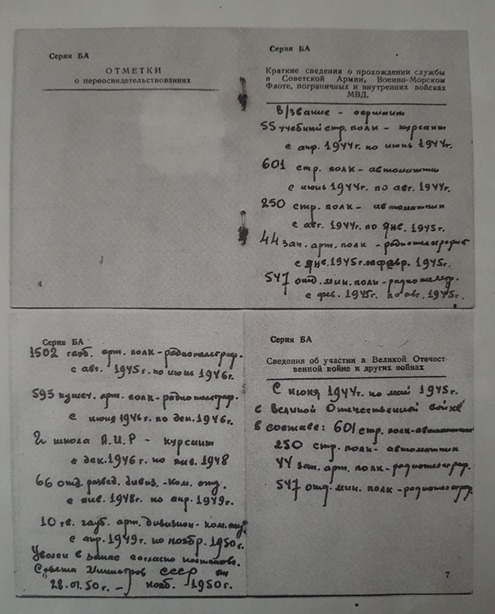 Серия БА
ОТМЕТКИ
о переосвидетельствованиях
4
Серия БА
Краткие сведения о прохождении службы
в Советской Армии, Военно-Морском
Флоте, пограничных и внутренних войсках
МВД.
В/звание -
55 учебный стр. полк - курсант
с апр. 1944г. по июнь 1944г.
601 стр. полк - автоматчик
с июнь 1944г. по авг. 1944г.
250 стр. полк - автоматчик
с авг. 1944г. по янв. 1945г.
44 зап. арт. полк - радиотелеграф.
с янв. 1945г. по февр. 1945г.
547 отд. мин. полк - радиотелегр.
с фев. 1945г. по авг. 1945г.
Серия БА
1502 гауб. арт. полк - радиотелеграф.
с авг. 1945г. по июнь 1946г.
595 пушеч. арт. полк - радиотелеграф.
с июня 1946г. по дек. 1946г.
школа А.И.Р - курсант
с дек. 1946г. по янв. 1948
66 отд. развед. дивиз. - ком. отд.
с янв. 1948г. по апр. 1949г.
10 гв. гауб. арт. дивизион - ком. отд.
с апр. 1949г. по ноябр. 1950г.
Уволен в запас согласно постановл.
Совета Министров СССР от
28.01.50г. - нояб. 1950г.
Серия БА
Сведения об участии в Великой Отечест-
венной войне и других войнах
С июня 1944г. по май 1945г.
в Великой Отечественной войне
в составе: 601 стр. полк - автоматчик
250 стр. полк - автоматчик
44 зап. арт. полк - радиотелеграф.
547 отд. мин. полк - радиотелеграф.
7